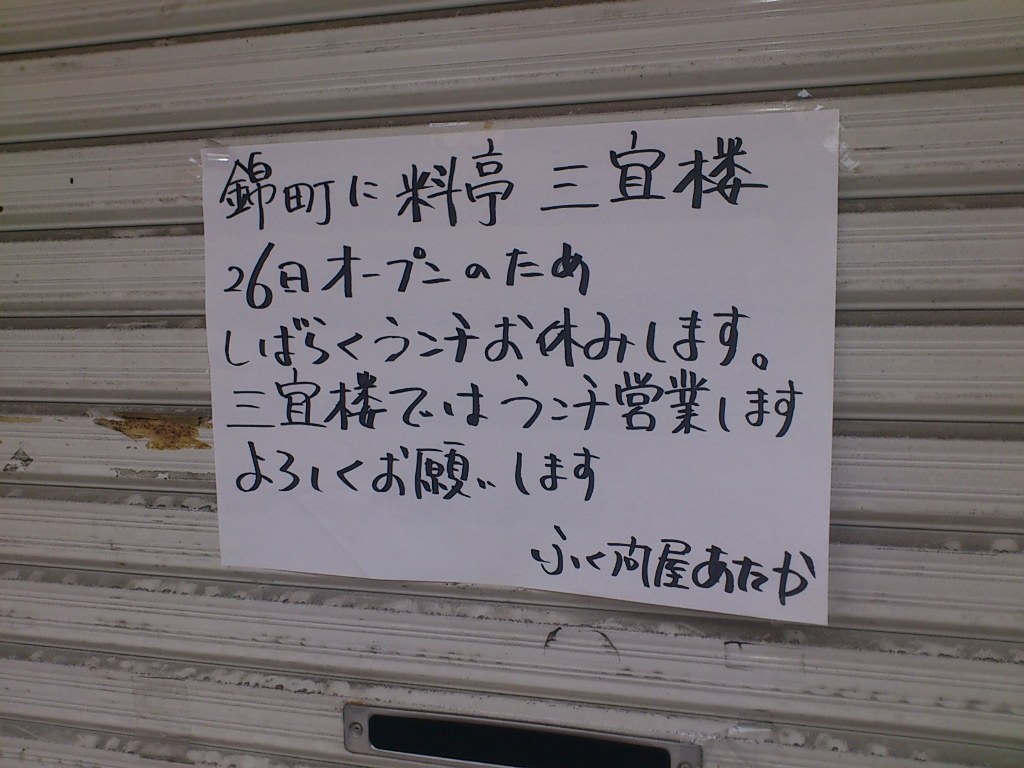 錦町に料亭 三宜楼
26日オープンのため
しばらくランチお休みします。
三宜楼ではランチ営業します
よろしくお願いします
ふく河屋あたか